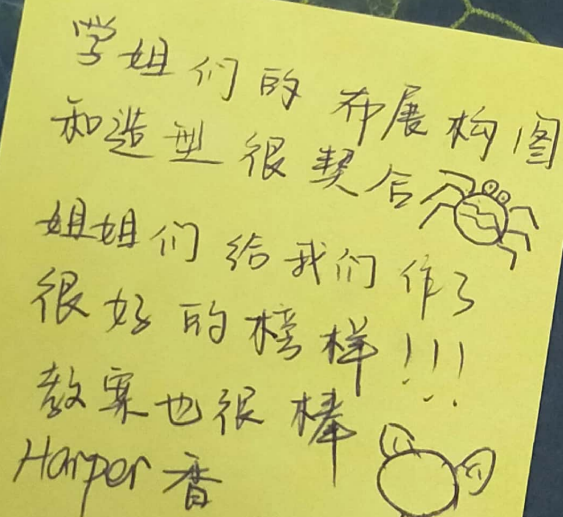 学姐们的布展构图
和造型很契合
姐姐们给我们作了
很好的榜样!!!
教案也很棒
Harper香